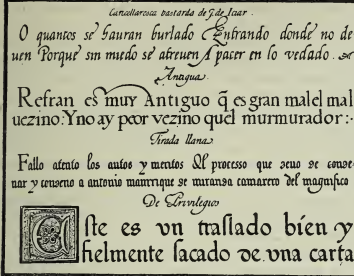 Cancellaresca bastarda de J. de Iciar.
O quantos se hauran burlado Entrando donde no de
uen Porque sin miedo se atreuen A pacer en lo vedado.
Antigua.
Refran es muy Antiguo q̃ es gran mal el mal
uezino: Y no ay peor vezino quel murmurador :-
Tirada llana.
Fallo atento los autos y meritos Del processo que deuo de conde
nar y condeno a antonio manrrique de miranda camarero del magnifico
De Priuilegios
Este es vn traslado bien y
fielmente sacado de vna carta